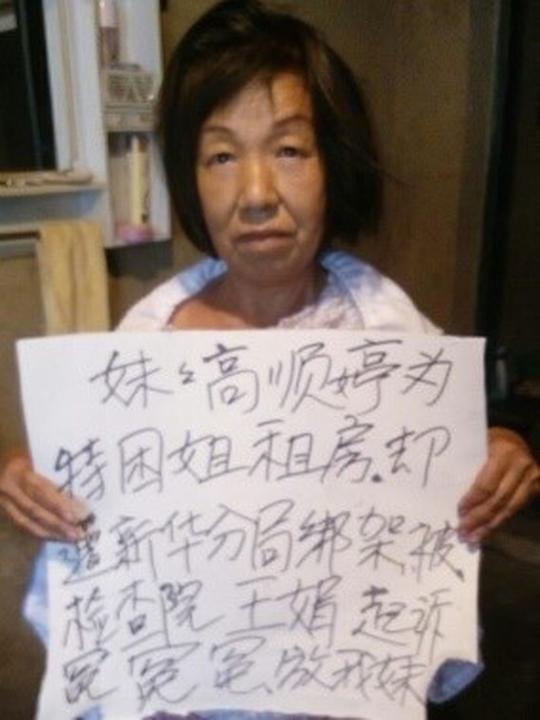 妹々高顺婷为
特困姐租房.却
遭新华分局绑架.被.
检查院 王娟 起诉
冤冤冤.放我妹